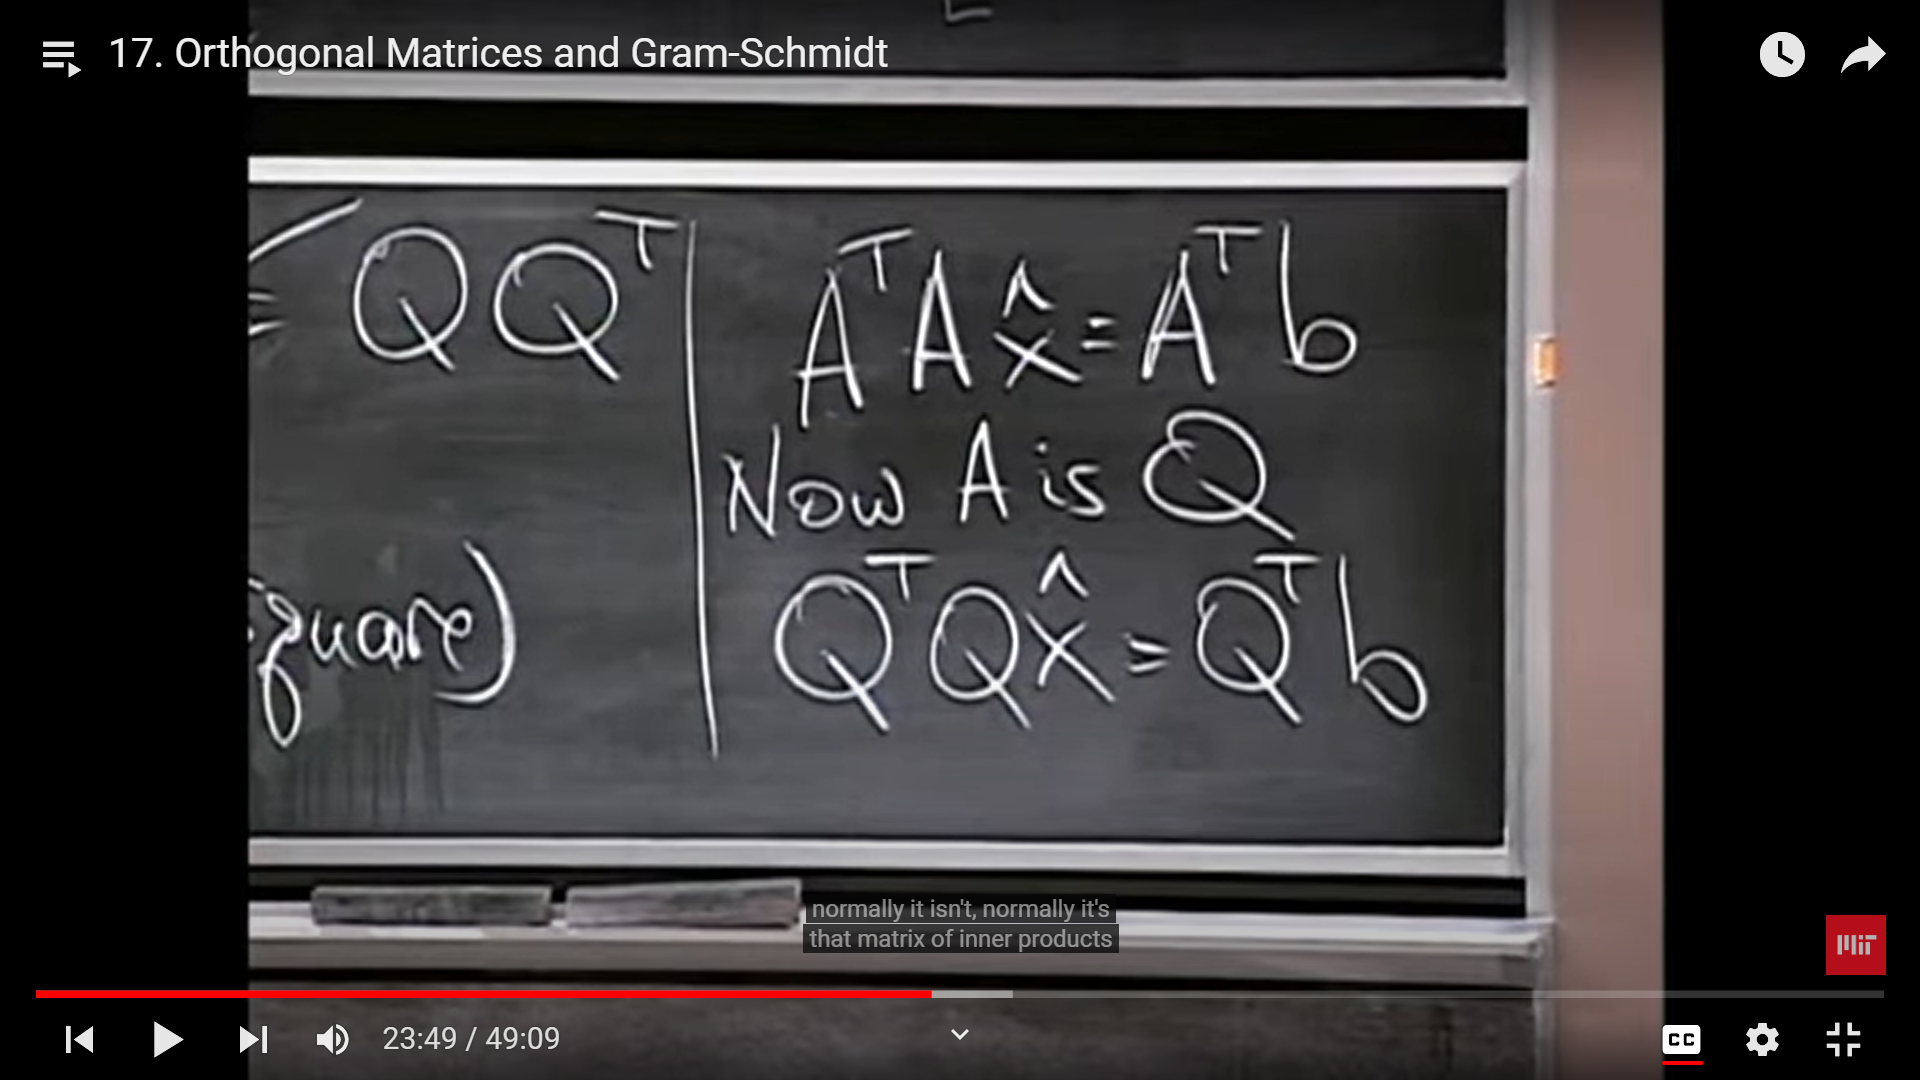 17. Orthogonal Matrices and Gram-Schmidt
= QQᵀ
AᵀAx̂ = Aᵀb
Now A is Q
quare)
QᵀQx̂ = Qᵀb
normally it isn't, normally it's
that matrix of inner products
MIT
23:49 / 49:09
CC